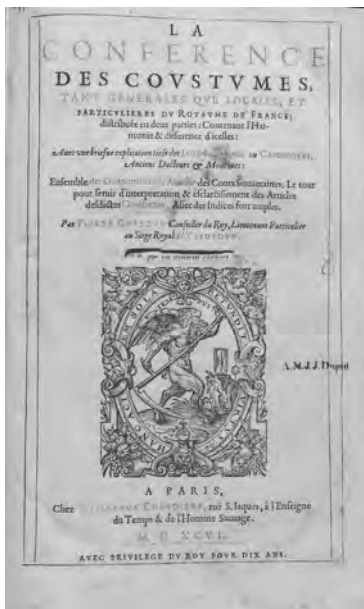 LA
CONFERENCE
DES COVSTVMES,
TANT GENERALES QVE LOCALES, ET
PARTICVLIERES DV ROYAVME DE FRANCE;
distribuée en deux parties: Contenant l'Har-
monie & difference d'icelles:
Auec vne briefue explication tirée des
Anciens Docteurs & Modernes:
Ensemble des Cours Souueraines, Le tout
pour seruir d'interpretation & esclarcissement des Articles
desdictes Auec des Indices fort amples.
Par Conseiller du Roy, Lieutenant Particulier
au Siege Royal
HANC ACIEM SOLA RETVNDIT VIRTVS
A.M.J.J. Dupin
A PARIS,
Chez GVILLAVME CHAVDIERE, ruë S. Iaques, à l'Enseigne
du Temps & de l'Homme Sauuage.
M. D. XCVI.
AVEC PRIVILEGE DV ROY POVR DIX ANS.